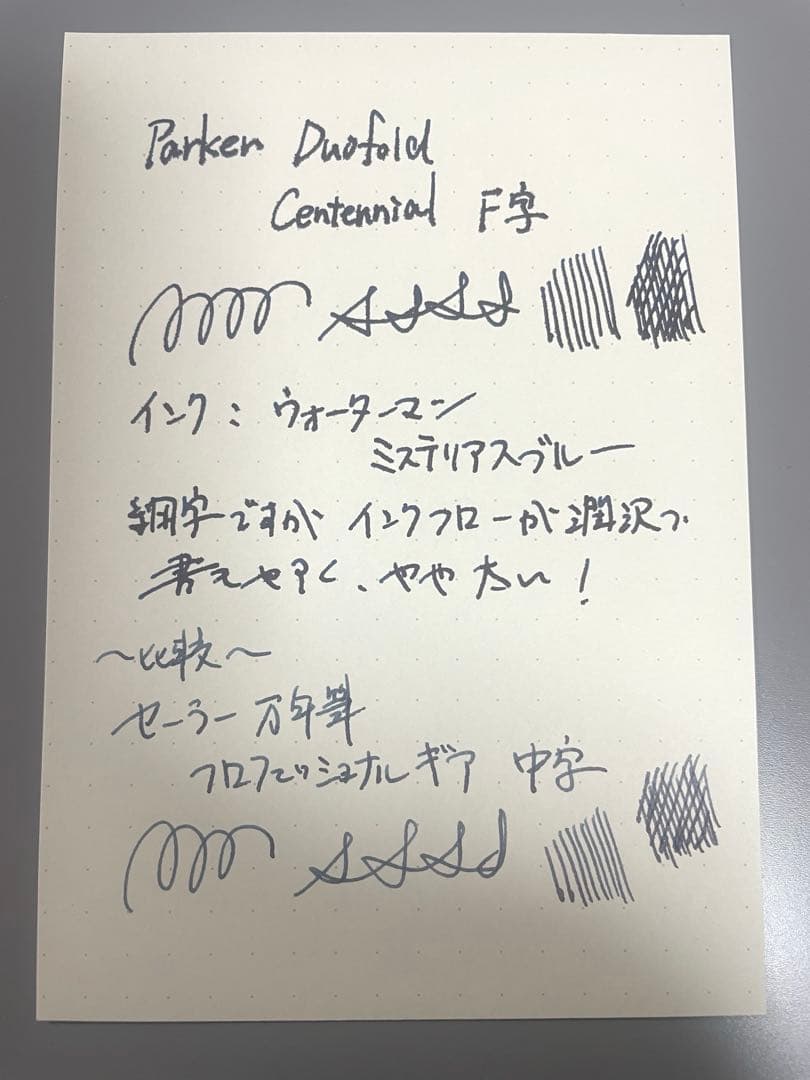 Parker Duofold
Centennial F字
インク：ウォーターマン
ミステリアスブルー
細字ですが インクフローが潤沢で
書きやすく、やや太い！
～比較～
セーラー万年筆
プロフェッショナルギア 中字